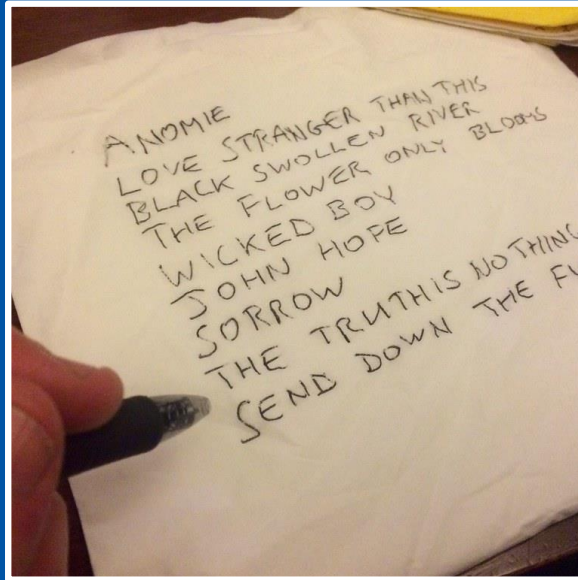 ANOMIE
LOVE STRANGER THAN THIS
BLACK SWOLLEN RIVER
THE FLOWER ONLY BLOOMS
WICKED BOY
JOHN HOPE
SORROW
THE TRUTH IS NOTHING
SEND DOWN THE